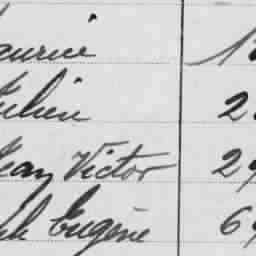 aurice 1
ulien 2
Jean Victor 29
ph Eugène 69